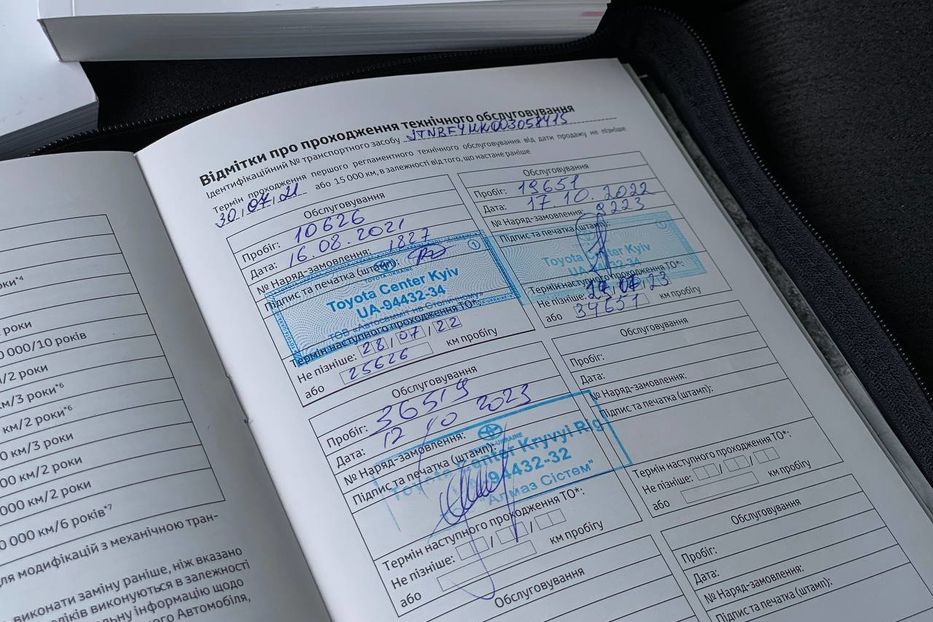 Відмітки про проходження технічного обслуговування
Ідентифікаційний № транспортного засобу
Термін проходження першого регламентного технічного обслуговування від дати продажу не пізніше
30/07/21 або 15 000 км, в залежності від того, що настане раніше
Обслуговування
Пробіг: 10626
Дата: 16.08.2021
№ Наряд-замовлення: 1827
Підпис та печатка (штамп):
Toyota Center Kyiv
UA-94432-34
ТОВ «Автосаміт на Столичному»
Термін наступного проходження ТО*:
Не пізніше: 28/07/22
або 25626 км пробігу
Обслуговування
Пробіг: 19651
Дата: 17 10.2022
№ Наряд-замовлення:
Підпис та печатка (штамп):
Toyota Center Kyiv
UA-94432-34
Термін наступного проходження ТО*:
Не пізніше: 23
або 34651 км пробігу
Обслуговування
Пробіг: 36519
Дата: 12 10 2023
№ Наряд-замовлення:
Підпис та печатка (штамп):
UKRAINE
Toyota Center Kryvyi Rig
94432-32
Алмаз Сістем"
Термін наступного проходження ТО*:
Не пізніше:
або км пробігу
Обслуговування
Пробіг:
Дата:
№ Наряд-замовлення:
Підпис та печатка (штамп):
Термін наступного проходження ТО*:
Не пізніше:
або км пробігу
Обслуговування
Обслуговування
Пробіг:
Дата:
№ Наряд-замовлення:
Підпис та печатка (штамп):
роки
000/10 років
м/2 роки
км/3 роки*⁶
км/2 роки*⁶
0 км/3 роки
000 км/2 роки
000 км/2 роки
0 000 км/6 років*⁷
для модифікацій з механічною тран-
виконати заміну раніше, ніж вказано
виконуються в залежності
інформацію щодо
Автомобіля,